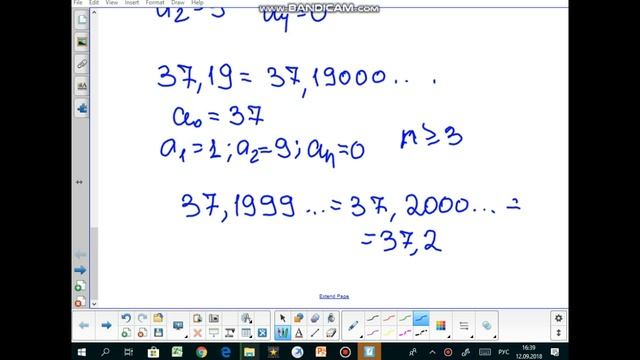 File Edit View Insert Format Tools Help
www.BANDICAM.com
a₂=9 aₙ=0
37,19 = 37,19000...
a₀ = 37
a₁=1; a₂=9; aₙ=0 n≥3
37,1999... = 37,2000... =
= 37,2
Extend Page
РУС
16:39
12.09.2018